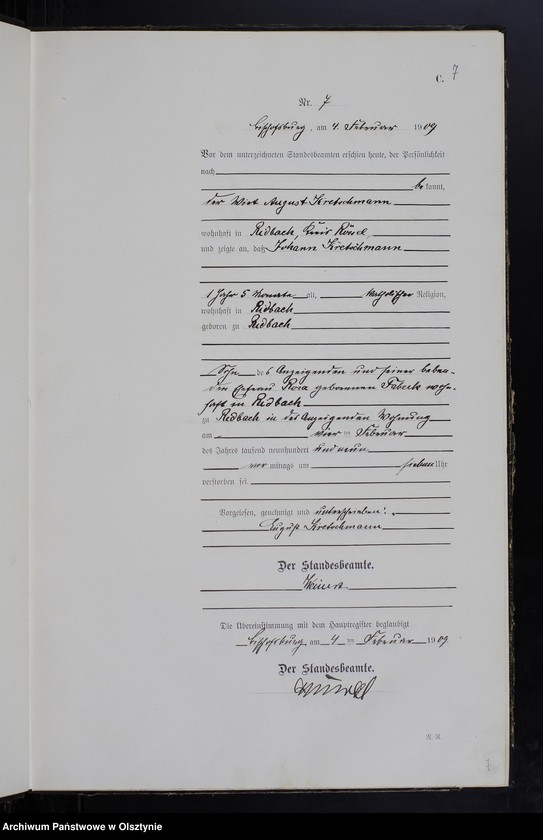 C. 7
Nr. 7
Bischofsburg, am 4. Februar 1909
Vor dem unterzeichneten Standesbeamten erschien heute, der Persönlichkeit
nach
bekannt,
der Wirt August Kretschmann
wohnhaft in Ridbach, Kreis Rössel
und zeigte an, daß Johann Kretschmann
1 Jahr 5 Monate alt, katholischer Religion,
wohnhaft in Ridbach
geboren zu Ridbach
Sohn des Anzeigenden und seiner
Ehefrau Rosa geborenen wohn-
haft in Ridbach
zu Ridbach in des Anzeigenden Wohnung
am vier ten Februar
des Jahres tausend neunhundert und neun
vor mittags um sieben Uhr
verstorben sei.
Vorgelesen, genehmigt und unterschrieben.
August Kretschmann
Der Standesbeamte.
Die Übereinstimmung mit dem Hauptregister beglaubigt
Bischofsburg, am 4 ten Februar 1909
Der Standesbeamte.
7
Archiwum Państwowe w Olsztynie